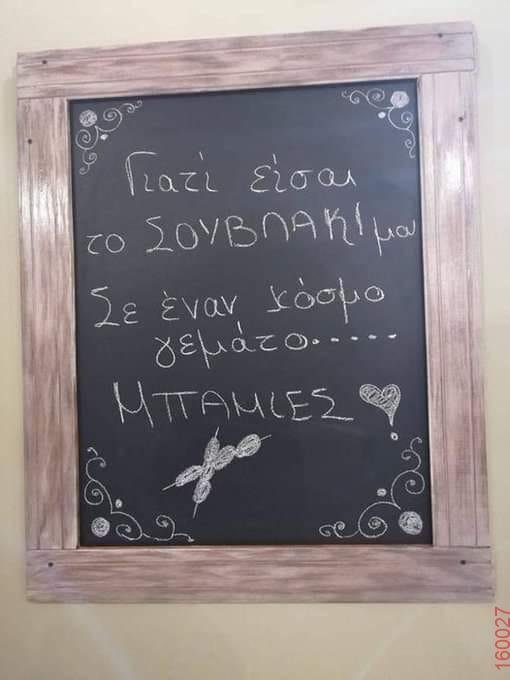 Γιατί είσαι
το ΣΟΥΒΛΑΚΙ μου
Σε έναν κόσμο
γεμάτο......
ΜΠΑΜΙΕΣ
160027